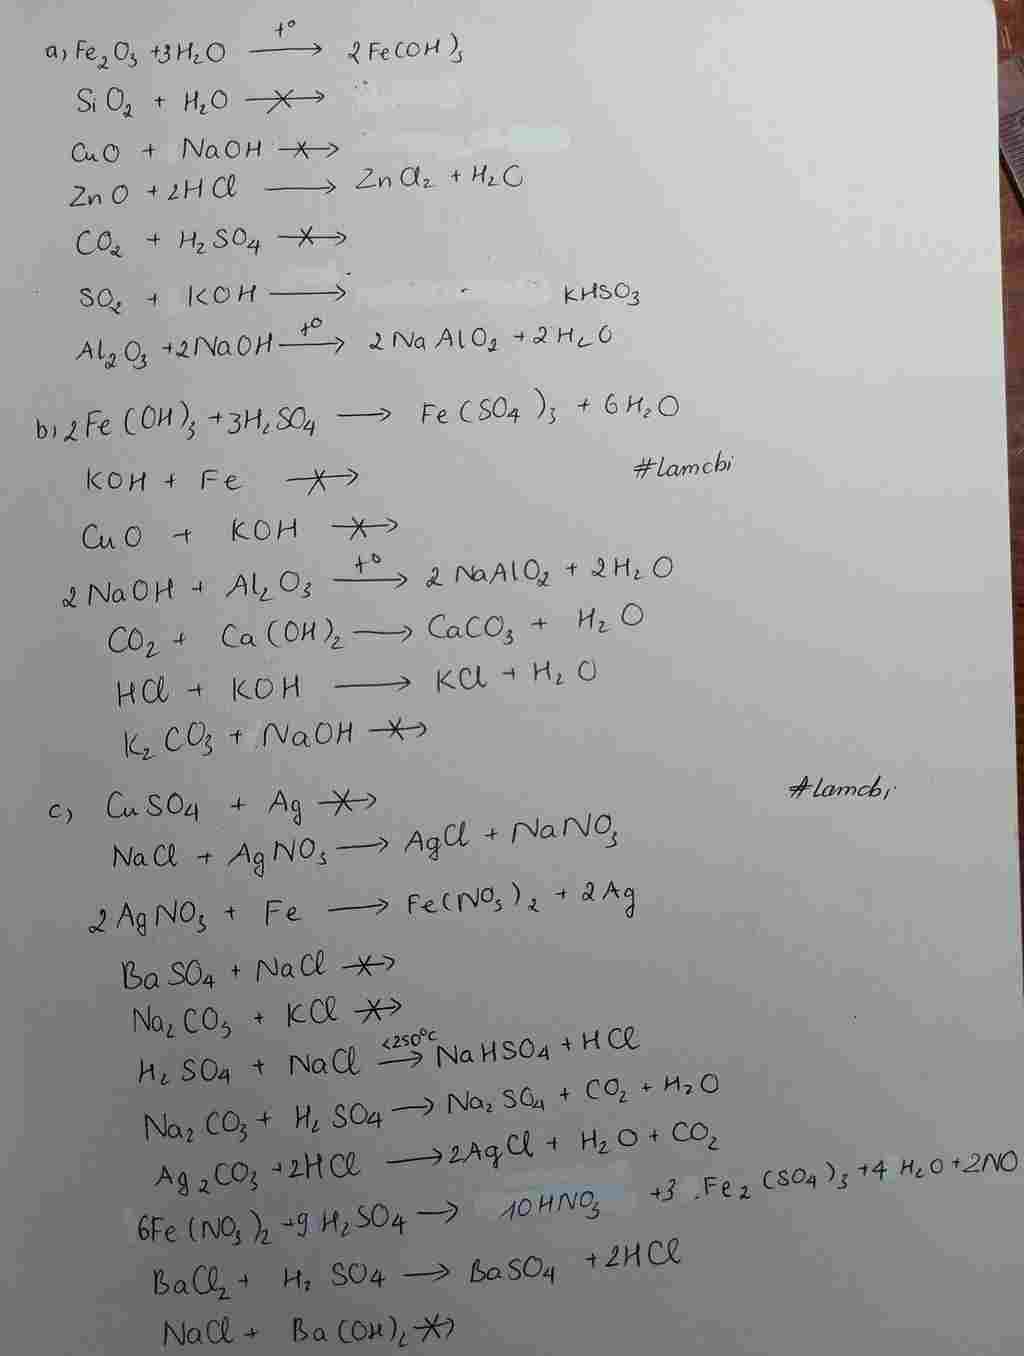 a, Fe₂O₃ +3H₂O —t°→ 2Fe(OH)₃
SiO₂ + H₂O —X→
CuO + NaOH —X→
ZnO + 2HCl ⟶ ZnCl₂ + H₂O
CO₂ + H₂SO₄ —X→
SO₂ + KOH ⟶ KHSO₃
Al₂O₃ +2NaOH —t°→ 2NaAlO₂ +2H₂O
b, 2Fe(OH)₃ +3H₂SO₄ ⟶ Fe(SO₄)₃ + 6H₂O
KOH + Fe —X→ #lamcbi
CuO + KOH —X→
2NaOH + Al₂O₃ —t°→ 2NaAlO₂ + 2H₂O
CO₂ + Ca(OH)₂ ⟶ CaCO₃ + H₂O
HCl + KOH ⟶ KCl + H₂O
K₂CO₃ + NaOH —X→
c, CuSO₄ + Ag —X→ #lamcbi
NaCl + AgNO₃ ⟶ AgCl + NaNO₃
2AgNO₃ + Fe ⟶ Fe(NO₃)₂ + 2Ag
BaSO₄ + NaCl —X→
Na₂CO₃ + KCl —X→
H₂SO₄ + NaCl —<250°C→ NaHSO₄ + HCl
Na₂CO₃ + H₂SO₄ ⟶ Na₂SO₄ + CO₂ + H₂O
Ag₂CO₃ +2HCl ⟶ 2AgCl + H₂O + CO₂
6Fe(NO₃)₂ +9H₂SO₄ ⟶ 10HNO₃ +3Fe₂(SO₄)₃ +4H₂O +2NO
BaCl₂ + H₂SO₄ ⟶ BaSO₄ +2HCl
NaCl + Ba(OH)₂ —X→